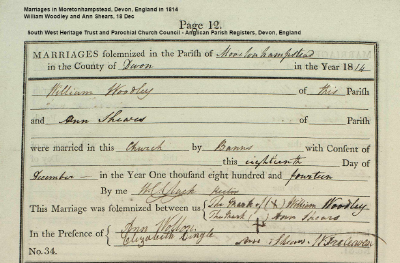 Marriages in Moretonhampstead, Devon, England in 1814
William Woodley and Ann Shears, 18 Dec
South West Heritage Trust and Parochial Church Council - Anglican Parish Registers, Devon, England
Page 12.
MARRIAGES solemnized in the Parish of Moretonhampstead
in the County of Devon in the Year 1814
William Woodley of this Parish
and Ann Sheares of Parish
were married in this Church by Banns with Consent of
this eighteenth Day of
December in the Year One thousand eight hundred and fourteen
By me Rector
This Marriage was solemnized between us { The Mark of (X) William Woodley
The Mark (+) Ann Shears
In the Presence of { Ann
Elizabeth Lingle
No. 34.